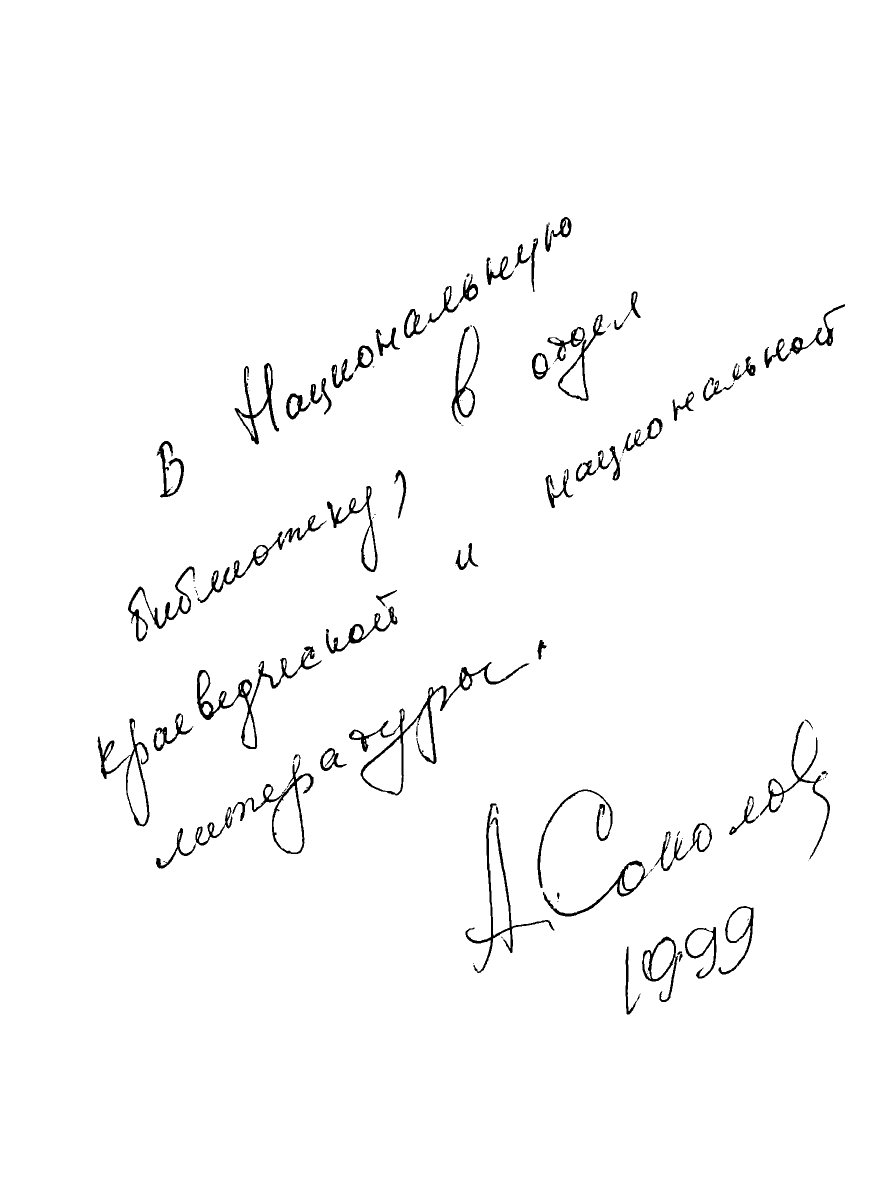 В Национальную
библиотеку, в отдел
краеведческой и национальной
литературы.
А. Соколов
1999